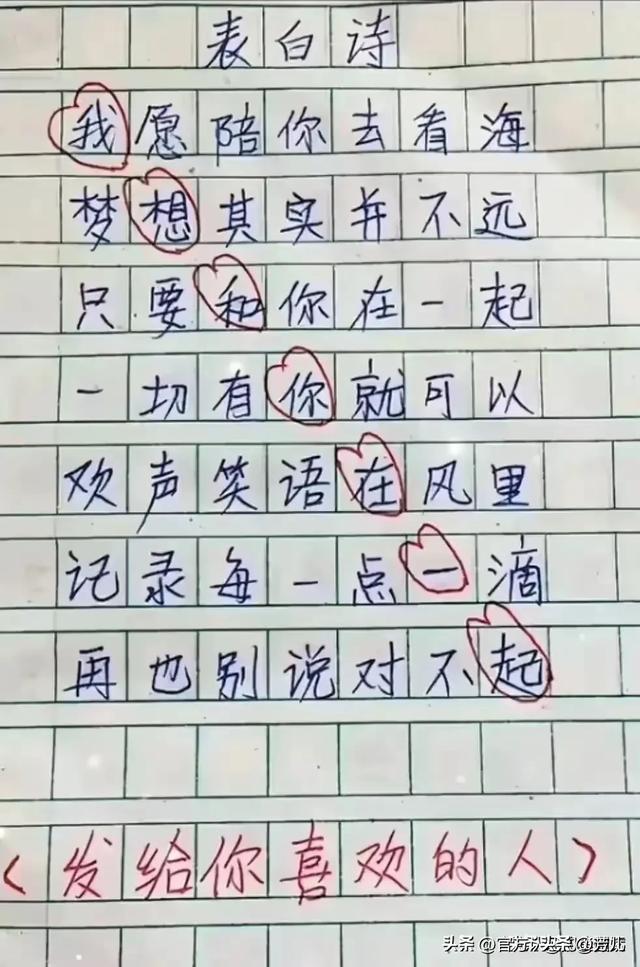 表白诗
我愿陪你去看海
梦想其实并不远
只要和你在一起
一切有你就可以
欢声笑语在风里
记录每一点一滴
再也别说对不起
<发给你喜欢的人>
头条